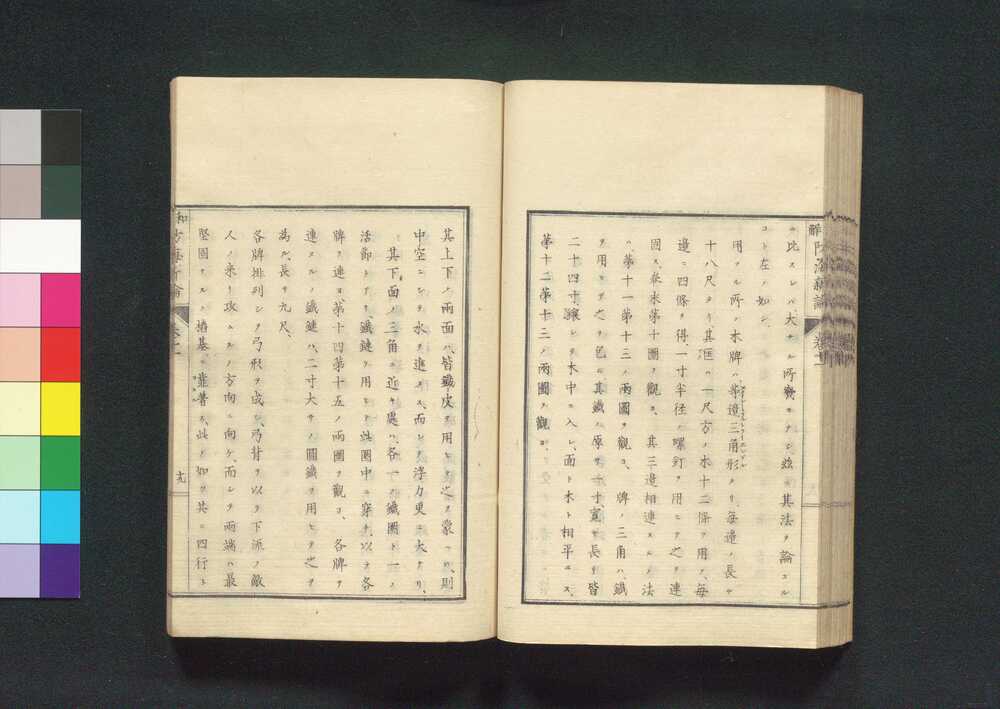 ニ比スレバ大ナル所費モナシ玆ニ其法ヲ論スル
コト左ノ如シ
用フル所ノ木牌ハ等邊三角形タリ毎邊ノ長サ
十八尺タリ其匡ハ一尺方ノ木十二條ヲ用フ、毎
邊ニ四條ヲ得、一寸半径ノ螺釘ヲ用ヒテ之ヲ連
固ス、巻末第十圖ヲ觀ヨ、其三邊相連スルノ法
ハ、第十一第十三ノ兩圖ヲ觀ヨ、牌ノ三角ハ、鐵
ヲ用ヒテ之ヲ包ミ其鐵ノ厚サ一寸、寛サ長サ皆
二十四寸、鑲シテ木中ニ入レ、面ト木ト相平ニス、
第十二第十三ノ兩圖ヲ觀ヨ、
其上下ノ兩面ハ、皆鐵皮ヲ用ヒテ之ヲ蒙フハ、則
中空ニシテ水ヲ進メス、而シテ浮力更ニ大タリ、
其下面ノ三角ニ近キ處ハ、各一ノ鐵圈ト一ノ
活節トアリ、鐵鏈ヲ用ヒテ此圈中ニ穿チ、以テ各
牌ヲ連ヌ第十四第十五ノ兩圖ヲ觀ヨ、各牌ヲ
連スルノ鐵鏈ハ、二寸大サノ圓鐵ヲ用ヒテ之ヲ
為ル、長サ九尺、
各牌排列シテ弓形ヲ成シ、弓背ヲ以テ下流ノ敵
人ノ来リ攻ムルノ方向ニ向ケ、而シテ兩端ハ最
堅固ナルノ樁基ニ靠着ス、此ノ如ク其ニ四行ト
十九